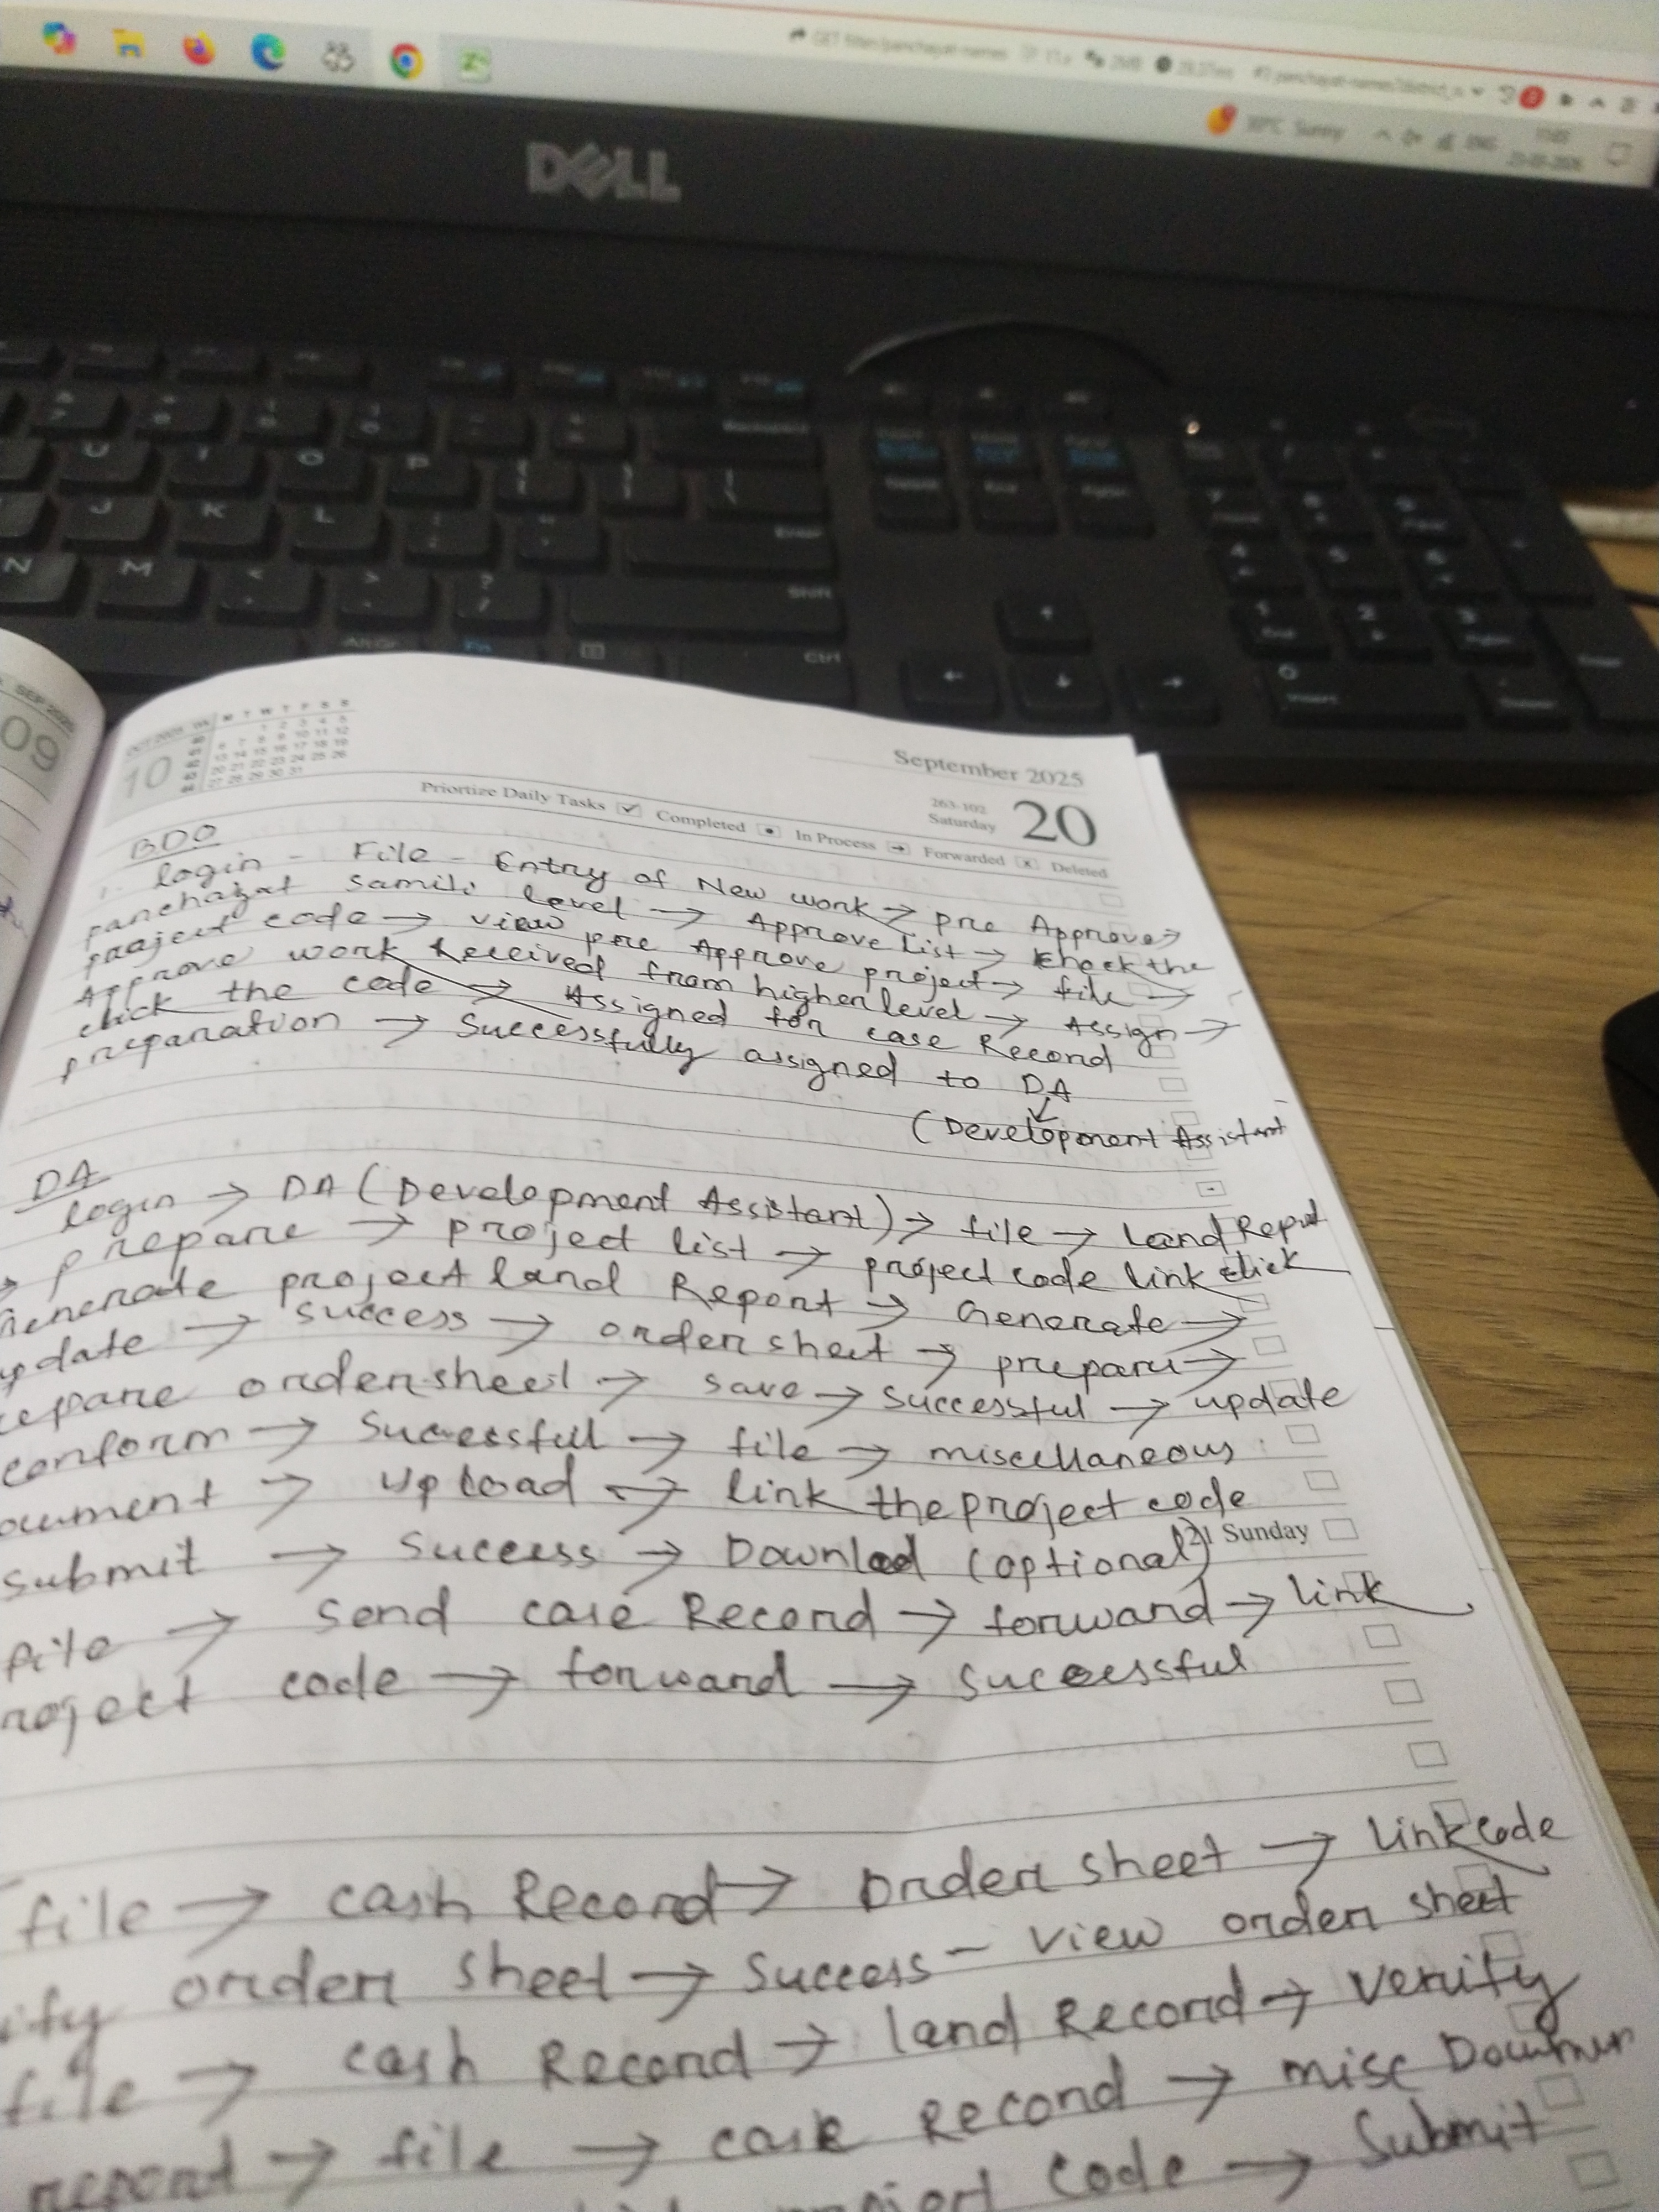 GET filter/panchayat-names
30°C Sunny
ENG
DELL
September 2025
10
20
263-102
Saturday
09
SEP
Priortize Daily Tasks Completed In Process Forwarded Deleted
BDO
login - File - Entry of New work → pre Approve →
panchayat samiti level → Approve List → check the
project code → view pre Approve project → file →
Approve work Received from higher level → Assign →
click the code → Assigned for case Record
preparation → Successfully assigned to DA
(Development Assistant
DA
login → DA (Development Assistant) → file → Land Report
→ prepare → project list → project code link click
Generate project land Report → Generate →
update → success → order sheet → prepare →
epare ordersheet → save → successful → update
conform → Successful → file → miscellaneous
ocument → upload → link the project code
submit → Success → Downlod (optional)
21 Sunday
file → send case Record → forward → link
roject code → forward → successful
file → cash Record → Order sheet → link code
ify order sheet → Success - view order sheet
file → cash Record → land Record → Verify
report → file → case Record → misc
code → Submit